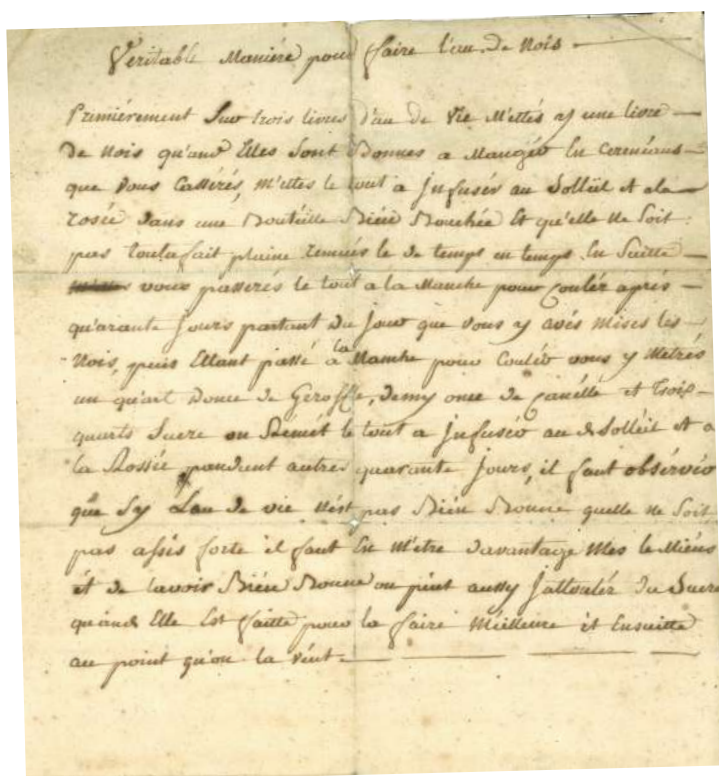 Veritable Maniére pour faire l'eau de Nois
Primiérement Sur trois livres d'au de Vie M'ettés y une livre
de Nois qu'and Elles Sont Bonnes a Mangér En Cerneaus
que vous Cassérés, m'ettes le tout a Jnfusér au Solleil et a la
rosée dans une Bouteille Bién Bouchée Et qu'elle ne Soit
pas toutafait pleine remués le de temps en temps En Suitte
vous passerés le tout a la Manche pour Coulér aprés
qu'arante Jours partant du Jour que vous y avés Mises les
Nois, puis Ettant passé a la Manche pour Coulér vous y Metrés
un qu'art donce de Geroffle, demy once de Canélle et trois
quarts Sucre on Rémét le tout a Jnfusér au Solléit et a
la Rossée pendent autres quarante Jours, il faut obsérvér
que Sy L'au de vie n'est pas Bién Bonne quelle ne Soit
pas assis forte il faut En M'etre davantage Mes le Miéus
ét de lavoir Bién Bonne on peut aussy Jattoulér du Sucre
quand Elle Est faitte pour la faire Meilleure et Ensuitte
au point qu'on la veut